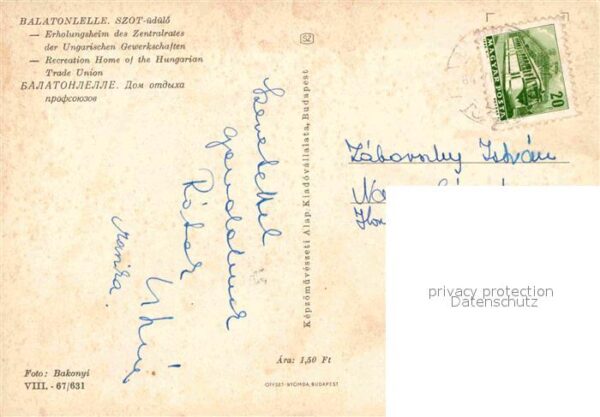 BALATONLELLE. SZOT-üdülő
— Erholungsheim des Zentralrates
der Ungarischen Gewerkschaften
— Recreation Home of the Hungarian
Trade Union
БАЛАТОНЛЕЛЛЕ. Дом отдыха
профсоюзов
Szeretettel
István
Foto: Bakonyi
VIII. - 67/631
Képzőművészeti Alap Kiadóvállalata, Budapest
Ára: 1,50 Ft
OFFSET-NYOMDA, BUDAPEST
MAGYAR POSTA
20
Záborszky István
privacy protection
Datenschutz